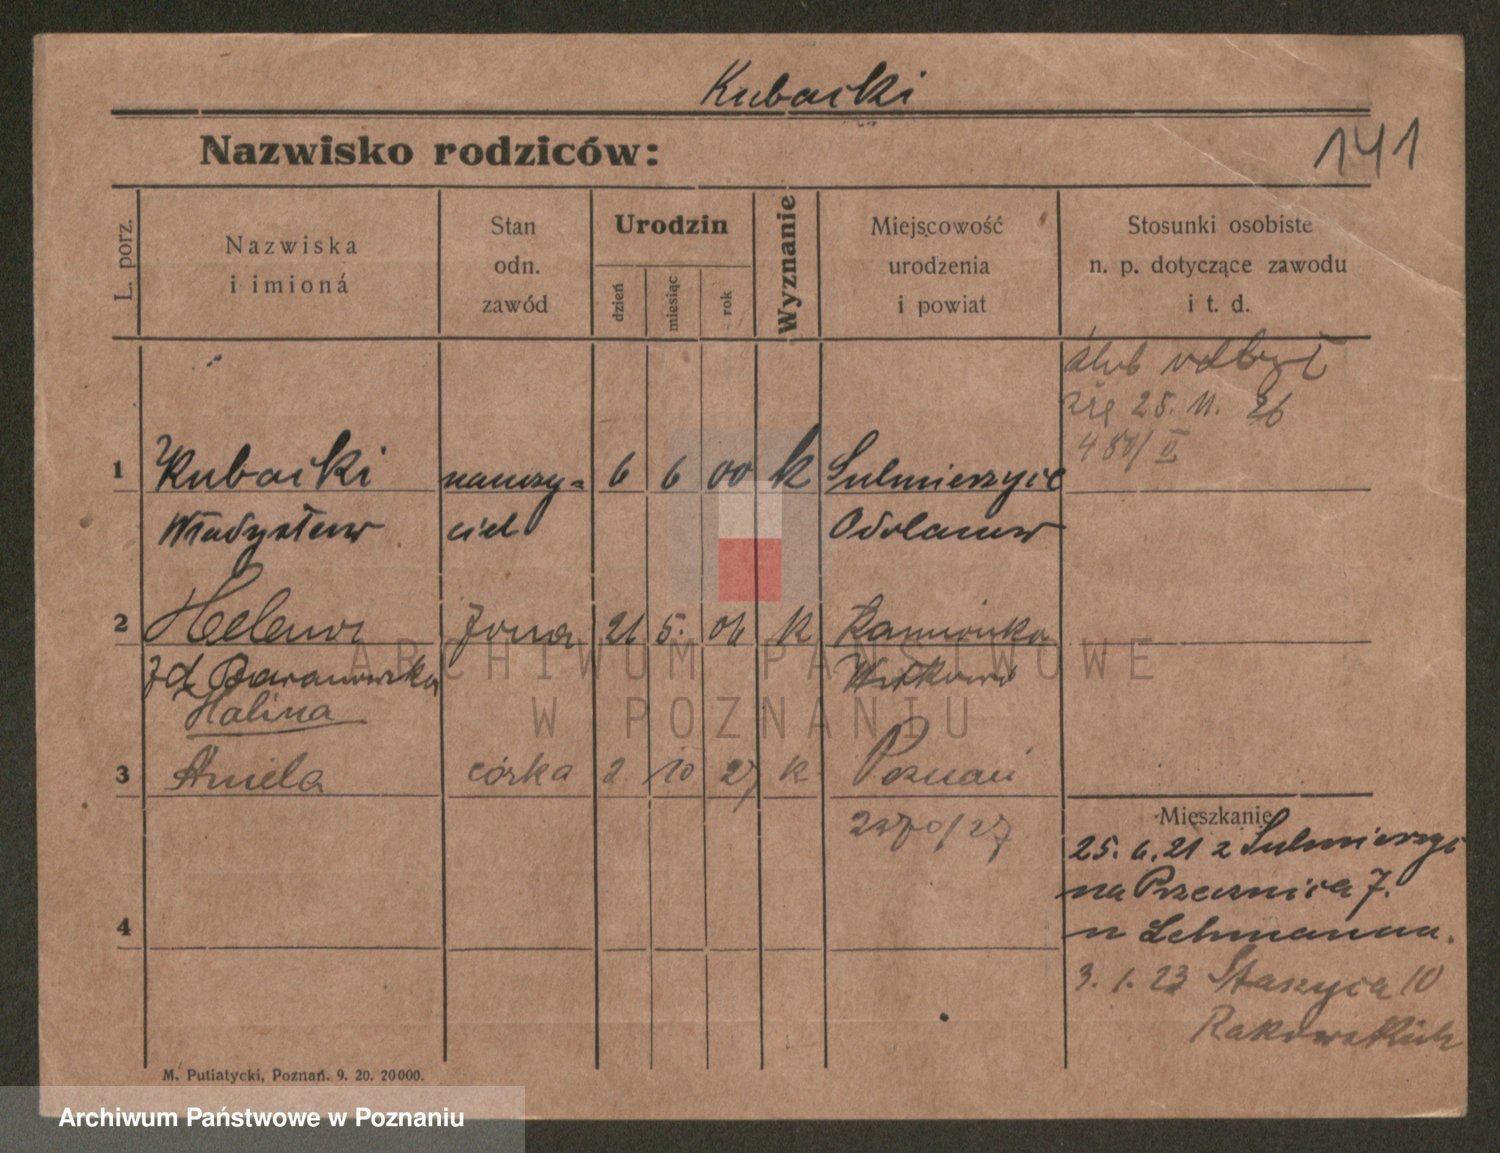 Kubacki
Nazwisko rodziców:
141
L. porz.
Nazwiska
i imioná
Stan
odn.
zawód
Urodzin
dzień
miesiąc
rok
Wyznanie
Miejscowość
urodzenia
i powiat
Stosunki osobiste
n. p. dotyczące zawodu
i t. d.
ślub odbył
się 25. 11. 26
480/II
1 Kubacki nauczy= 6 6 00 k Sulmierzyce
Władysław ciel Odolanów
2 Helena żona 21 5. 06 k Kamionka
żd Baranowska Witkowo
Halina
3 Aniela córka 2 10 27 k Poznań
2370/27
Mieszkanie
25. 6. 21 z Sulmierzyc
na Przecznica 7.
u Lehmanna.
4
3. 1. 23 Staszyca 10
M. Putiatycki, Poznań. 9. 20. 20000.
ARCHIWUM PAŃSTWOWE
W POZNANIU
Archiwum Państwowe w Poznaniu